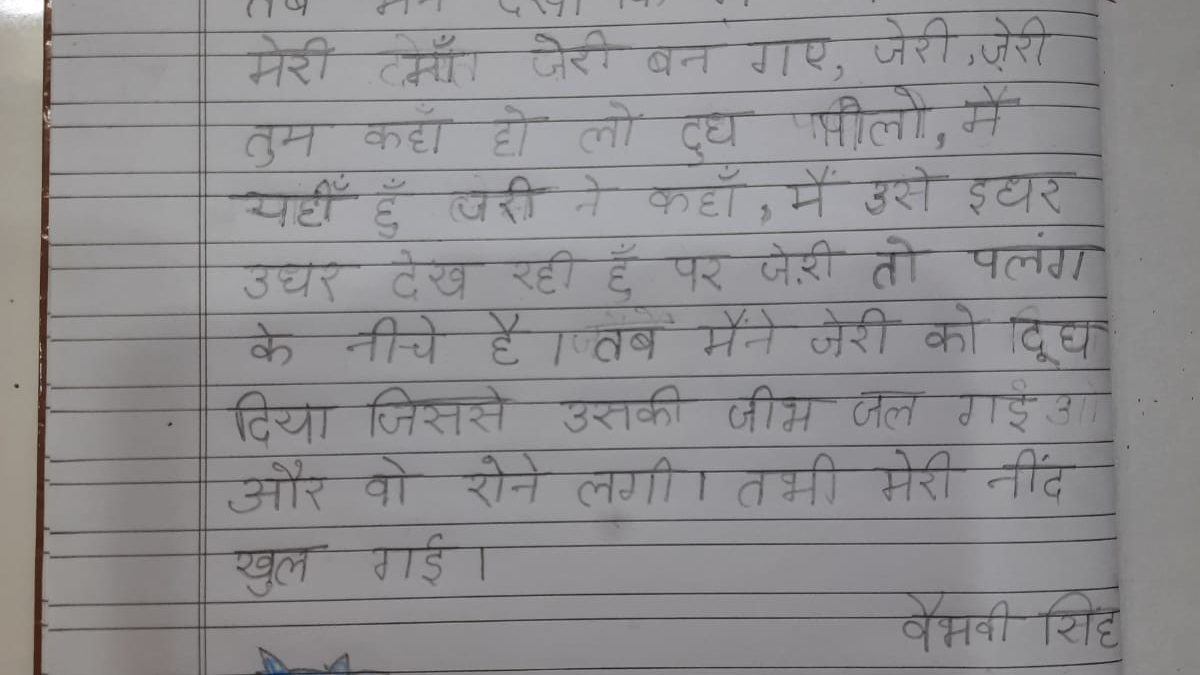 तब मैंने देखा कि
मेरी माँ जेरी बन गए, जेरी, ज़ेरी
तुम कहाँ हो लो दुध पीलो, मैं
यहीँ हुँ जेरी ने कहाँ, मैं उसे इधर
उधर देख रही हुँ पर जेऱी तो पलंग
के नीचे है । तब मैंने जेरी को दूध
दिया जिससे उसकी जीभ जल गई
और वो रोने लगी । तभी मेरी नींद
खुल गई ।
वैभवी सिंह